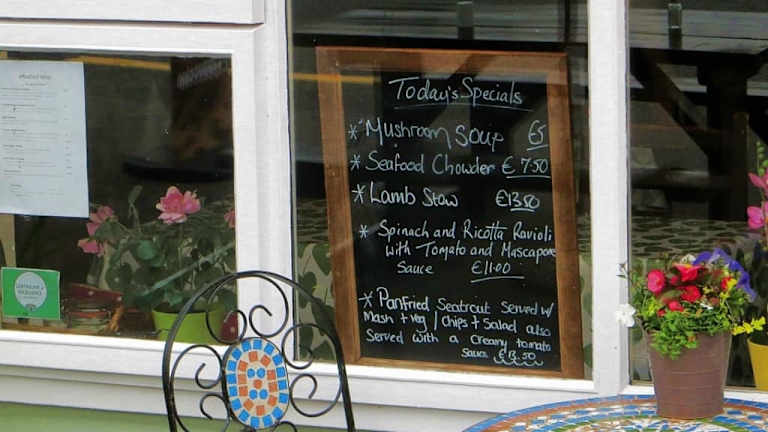 Today's Specials
* Mushroom Soup €5
* Seafood Chowder €7.50
* Lamb Stew €13.50
* Spinach and Ricotta Ravioli
with Tomato and Mascapone
Sauce €11.00
* Panfried Seatrout Served w/
Mash + veg / Chips + Salad also
Served with a creamy tomato
Sauce €13.50